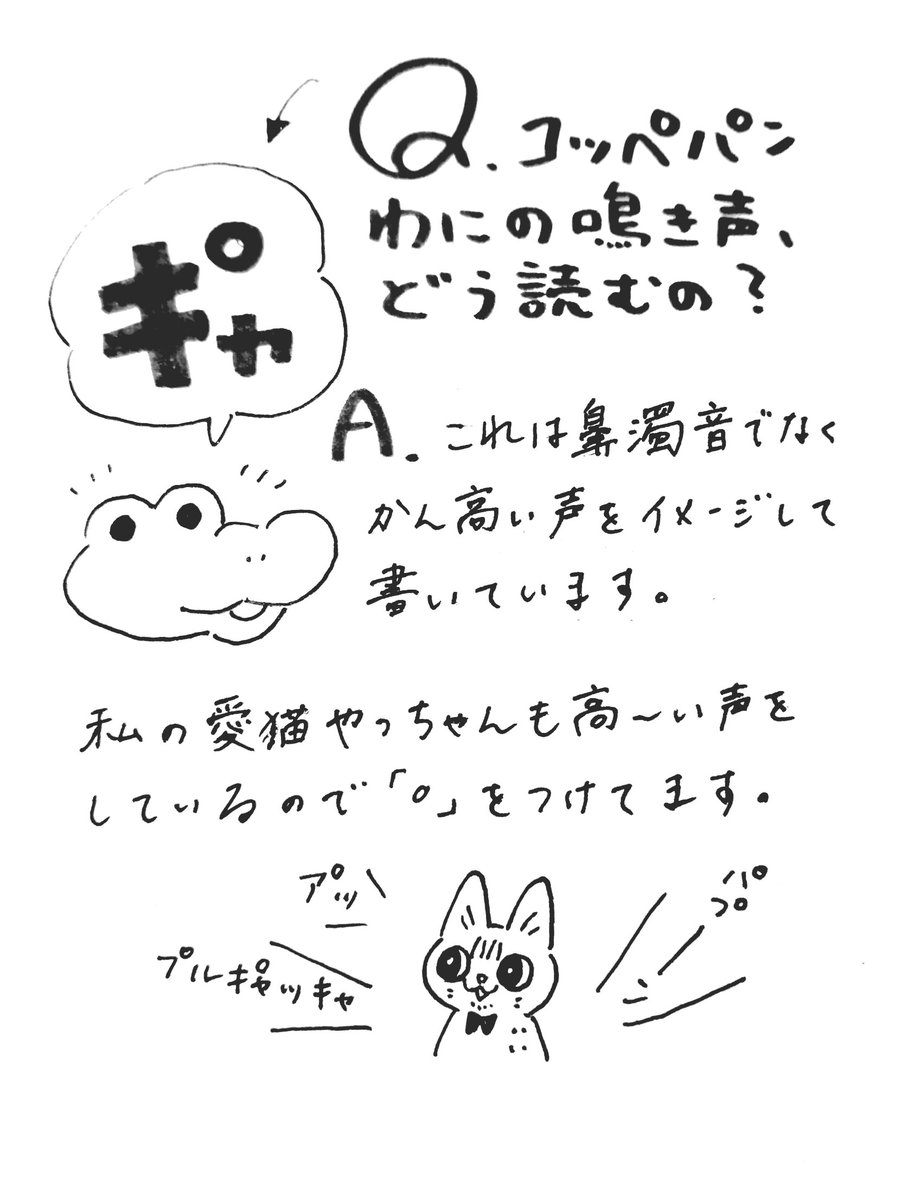 Q.コッペパン
わにの鳴き声、
どう読むの?
キ゚ャ
A.これは鼻濁音でなく
かん高い声をイメージして
書いています。
私の愛猫やっちゃんも高〜い声を
しているので「°」をつけてます。
ア゚ッ
プルキ゚ャッキャ